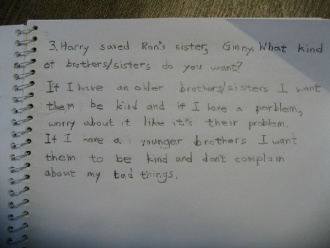 3. Harry saved Ron's sister, Ginny. What kind
of brothers/sisters do you want?
If I have an older brothers/sisters I want
them be kind and if I have a porblem,
worry about it like it's their problem.
If I have a younger brothers I want
them to be kind and don't complain
about my bad things.